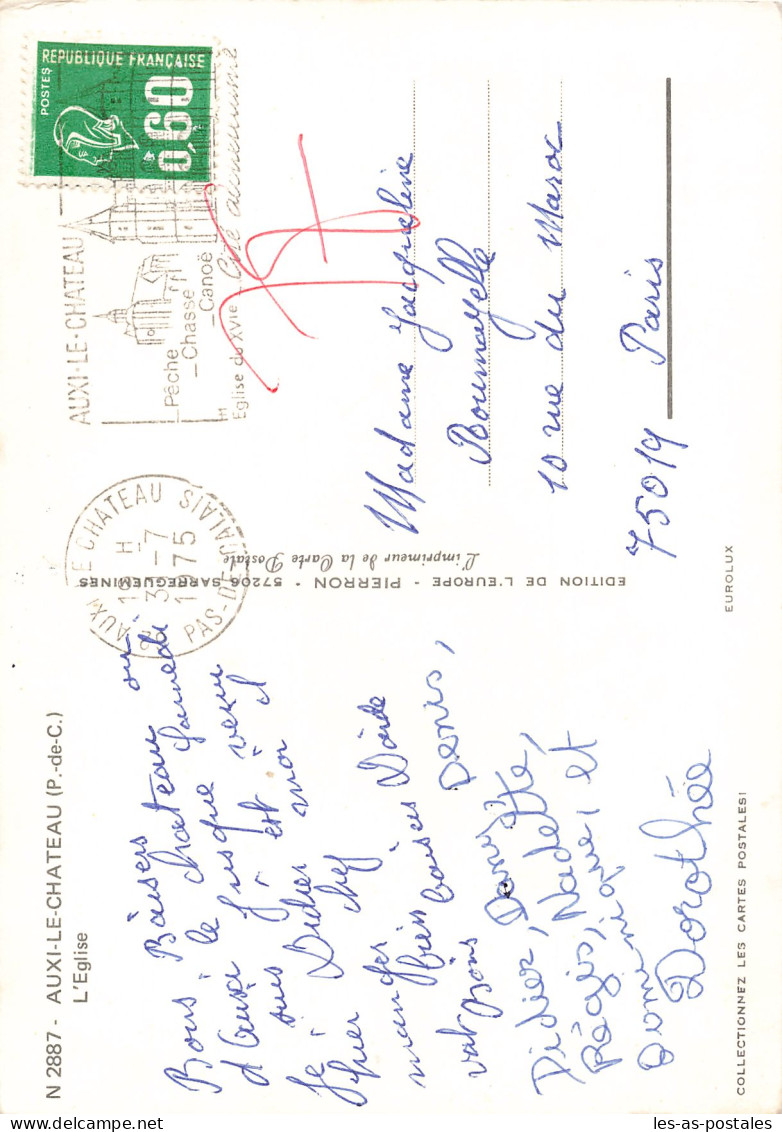 N 2887 - AUXI-LE-CHATEAU (P.-de-C.)
L'Eglise
Bons Baisers
d'Auxi le chateau ou
je suis jusque samedi
Didier
hier est
manger chez
bien baisers
Denis,
Didier,
Régis, Nadette,
Dominique, et
Dorothée
COLLECTIONNEZ LES CARTES POSTALES!
EDITION DE L'EUROPE - PIERRON - 57206 SARREGUEMINES
L'imprimeur de la Carte Postale
EUROLUX
AUXI LE CHATEAU
18 H
3 -7
1975
PAS-DE-CALAIS
AUXI-LE-CHATEAU
Pêche
Chasse
Canoë
Eglise du XVIe
REPUBLIQUE FRANÇAISE
POSTES
0,60
Madame Jacqueline
10 rue du Maroc
75019 Paris
les-as-postales
Delcampe.net